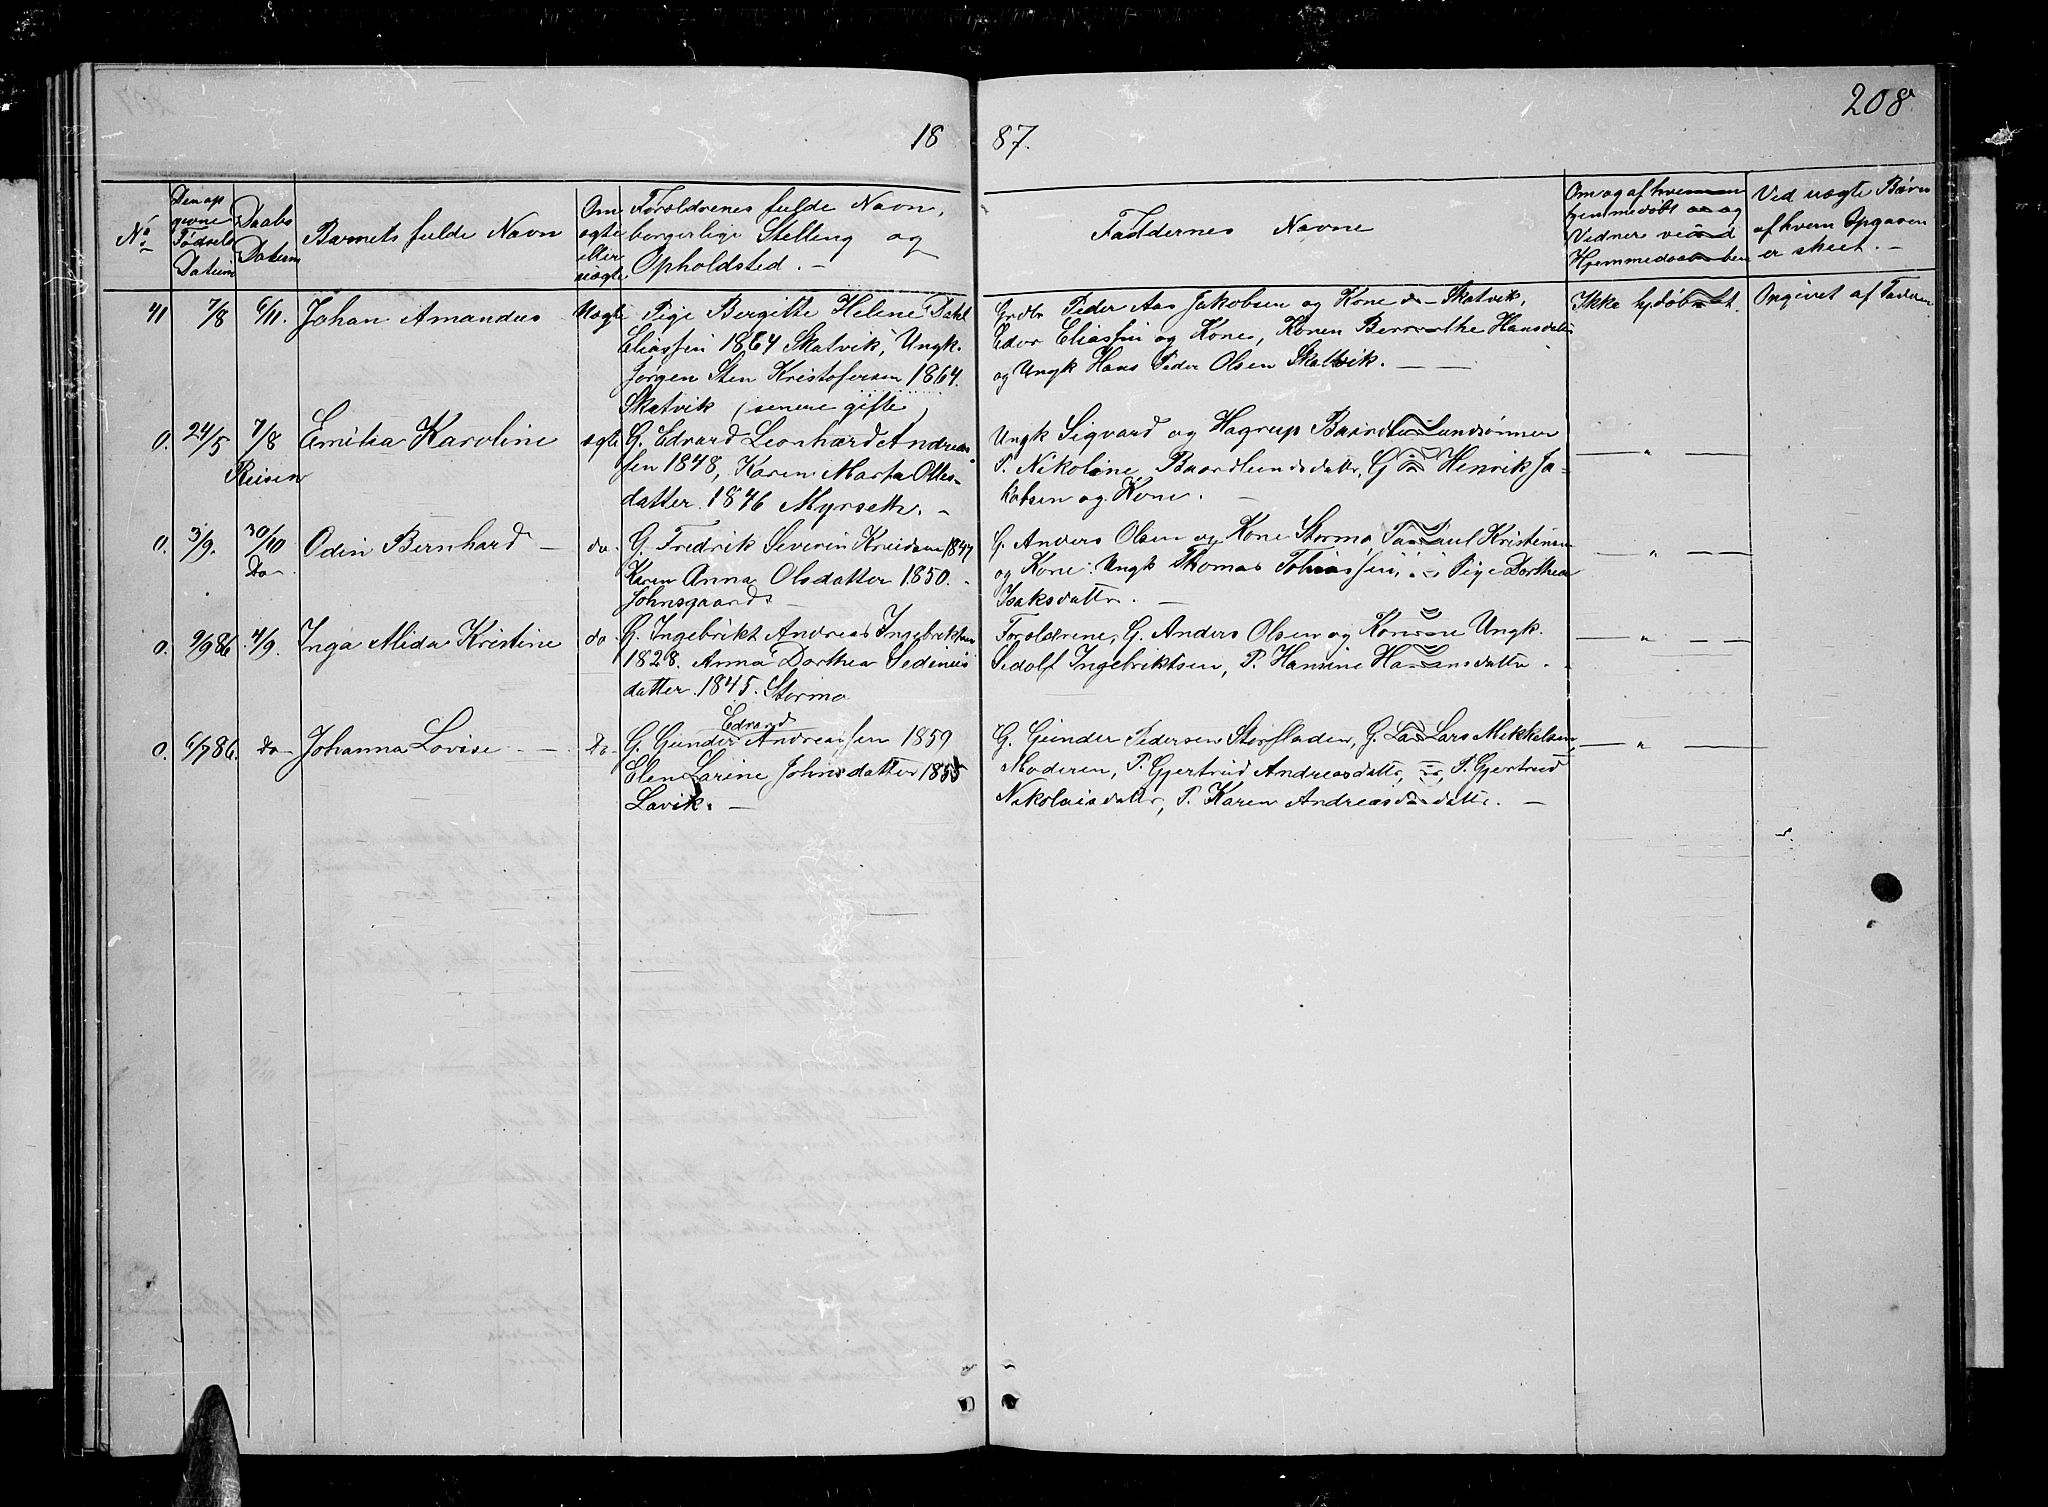 208
18 87.
No. Den op givne Fødsels Datum Daabs Datum Barnets fulde Navn Om ægte eller uægte Forældrenes fulde Navn, borgerlige Stilling og Opholdsted. — Faddernes Navne Om og af hvem hjemmedøbt og Vidner ved Hjemmedaaben Ved uægte Børn af hvem Opgaven er skeet. —
41 7/8 6/11. Johan Amandus Uægte Pige Bergitte Helene Dahl Grdbr Peder Aas Jakobsen og Kone — Skatvik, Ikke hj.døbt. Opgivet af Faderen
Eliassen 1864 Skatvik, Ungk. Edvr Eliassen og Kone, Konen Berethe Hansdatter
Jørgen Sten Kristofersen 1864. og Ungk Hans Peder Olsen Skatvik. — —
Skatvik (senere gifte)
0. 24/5 7/8 Emilia Karoline ægte G. Edvard Leonhard Andreas- Ungk Sigvard og Hagrup Baardlundsønner — " —
Reisen sen 1848, Karen Marta Ottes- P. Nikoline Baardlundsdatter, G Henrik Ja-
datter 1846 Myrseth. — kobsen og Kone. —
0. 3/9. 30/10 Odin Bernhard — do. G. Fredrik Severin 1847 G. Anders Olsen og Kone Stormo, Paul Kristensen — " —
Do Karen Anna Olsdatter 1850. og Kone. Ungk Thomas Tobiassen, Pige Dorthea
Johnsgaard — Isaksdatter. —
0. 9/9 86. 4/9. Inga Alida Kristine do G. Ingebrikt Andreas Ingebriktsen Forældrene, G. Anders Olsen og Kone Ungk. — " —
1828. Anna Dorthea Sedenius Sedolf Ingebriktsen, P. Hansine Hansdatter.
datter. 1845. Stormo
Edvard
0. 6/7 86. do Johanna Lovise — Do. G. Gunder Andreassen 1859 G. Gunder Pedersen Storfladen, G. Lars Mikkelsen, — " —
Elen Larine Johnsdatter 1855 Moderen, P. Gjertrud Andreasdatter, P. Gjertrud
Lavik. — Nikolaisdatter, P. Karen Andreasdatter. —